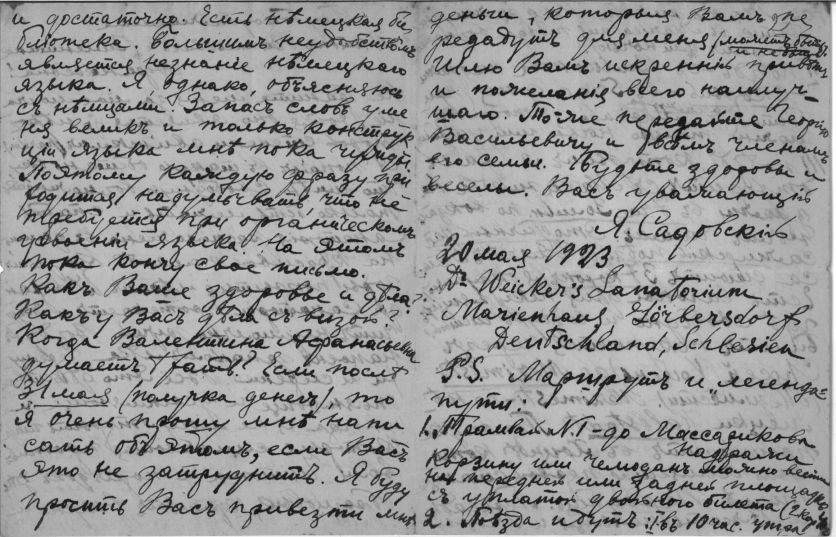 и достаточно. Есть нѣмецкая би
блiотека. Большимъ неудобством
является незнанiе нѣмецкаго
языка. Я, однако, объясняюсь
съ нѣмцами. Запасъ словъ у ме
ня великъ и только конструк
цiи языка мнѣ пока чужды.
Поэтому каждую фразу при
ходится надумывать что не
требуется при органическомъ
усвоенiи языка. На этомъ
пока кончу свое письмо.
Какъ Ваше здоровье и дѣла?
Какъ у Васъ дѣла съ визой?
Когда Валентина Афанасьевна
думаетъ ѣхать? Если послѣ
31 мая (получка денегъ), то
я очень прошу мнѣ напи
сать объ этомъ, если Васъ
это не затруднитъ. Я буду
просить Васъ привезти мнѣ
деньги, которыя Вамъ пе
редадутъ для меня (можетъ быть,
и небольш
Шлю Вамъ искреннiй привѣтъ
и пожеланiя всего наилуч-
шаго. Тоже передайте Георгiю
Васильевичу и всѣмъ членамъ
его семьи. Будьте здоровы и
веселы. Васъ уважающiй
Я. Садовскiй
20 мая 1923
Dr Weicker's Sanatorium
Marienhaus, Görbersdorf
Deutschland, Schlesien
P.S. Маршрутъ и легенда
пути:
1. Трамвай N. 1 - до
корзину или чемоданъ можно везти
на передней или задней площадкѣ
съ уплатой двойного билета
2. Поѣзда идутъ: въ 10 час. утра